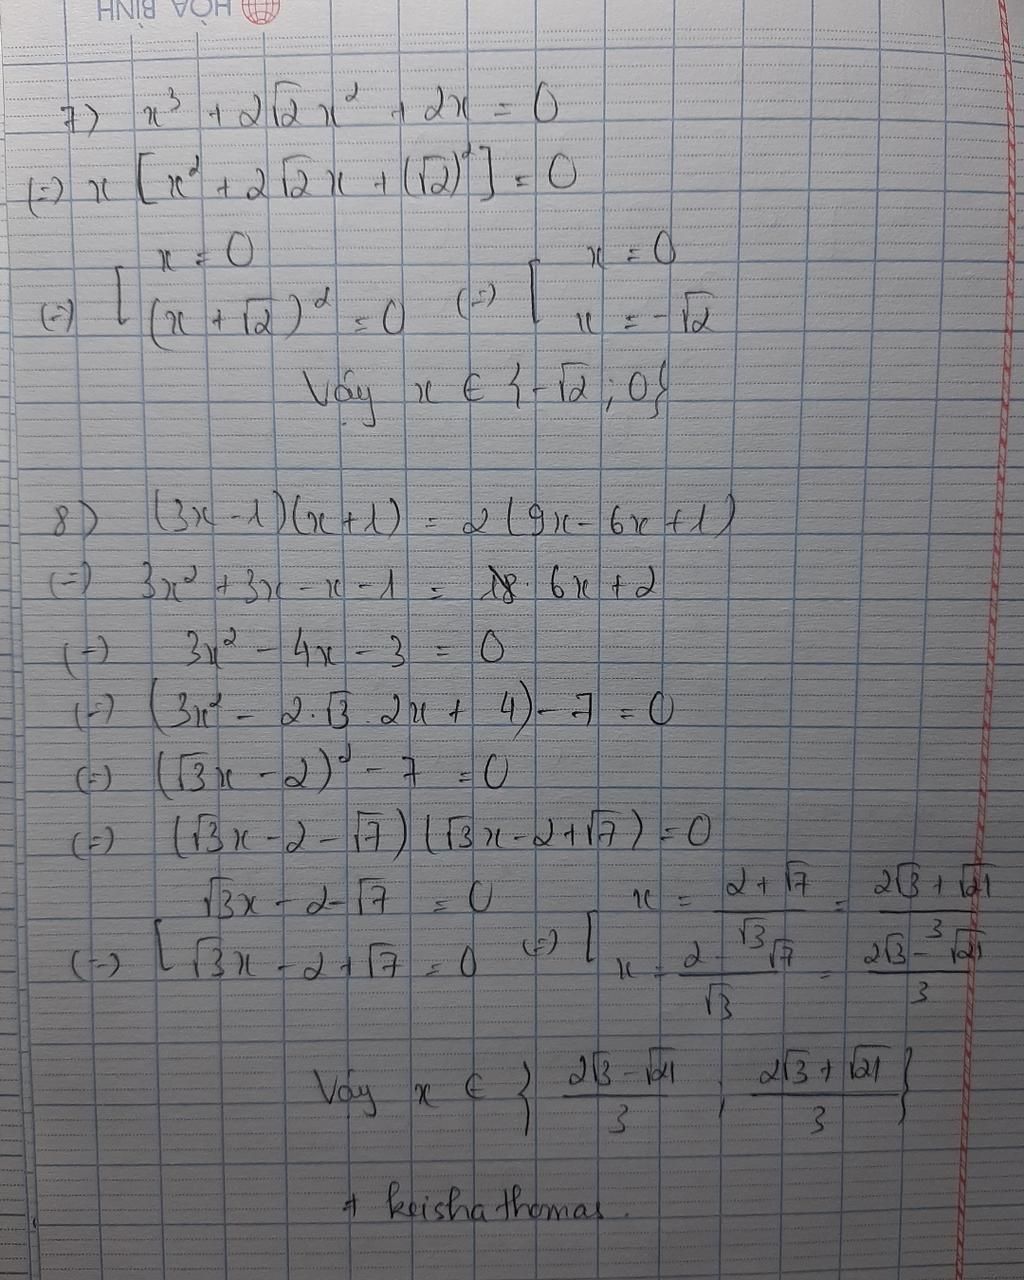 HÒA BÌNH
7) x³ + 2√2 x² + 2x = 0
(=) x [x² + 2√2 x + (√2)²] = 0
(=) [ x = 0 (=) [ x = 0
(x + √2)² = 0 x = -√2
Vậy x ∈ {-√2 ; 0}
8) (3x - 1)(x + 1) = 2(9x - 6x + 1)
(=) 3x² + 3x - x - 1 = 6x + 2
(=) 3x² - 4x - 3 = 0
(=) (3x² - 2.√3.2x + 4) - 7 = 0
(=) (√3x - 2)² - 7 = 0
(=) (√3x - 2 - √7)(√3x - 2 + √7) = 0
√3x - 2 - √7 = 0 x = (2 + √7)/√3 = (2√3 + √21)/3
(=) [ √3x - 2 + √7 = 0 (=) [ x = (2 - √7)/√3 = (2√3 - √21)/3
Vậy x ∈ { (2√3 - √21)/3 ; (2√3 + √21)/3 }
+ keisha thomas.